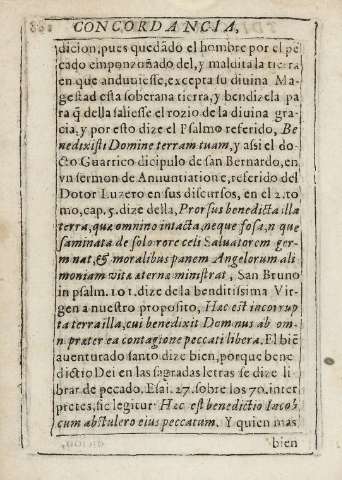 CONCORDANCIA,
dicion, pues quedãdo el hombre por el pe
cado emponzoñado del, y maldita la tierra
en que anduuiesse, excepta su diuina Ma-
gestad esta soberana tierra, y bendizela pa
ra q̃ della saliesse el rozio de la diuina gra-
cia, y por esto dize el Psalmo referido, Be
nedixisti Domine terram tuam, y assi el do-
cto Guarrico dicipulo de san Bernardo, en
vn sermon de Annuntiatione, referido del
Dotor Luzero en sus discursos, en el 2. to
mo, cap. 5. dize della, Prorsus benedicta illa
terra, quæ omnino intacta, neque fosa, n que
saminata de solo rore celi Saluatorem ger-
m nat, & moralibus panem Angelorum ali
moniam vitæ æternæ ministrat, San Bruno
in psalm. 101. dize de la benditissima Vir-
gen a nuestro proposito, Hæc est incorrup
ta terra illa, cui benedixit Dom nus ab om-
n præter ea contagione peccati libera. El biẽ
auenturado santo dize bien, porque bene
dictio Dei en las sagradas letras se dize li
brar de pecado. Esai. 27. sobre los 70. inter
pretes, sic legitur. Hæc est benedictio Iacob,
cum abstulero eius peccatum. Y quien mas
bien